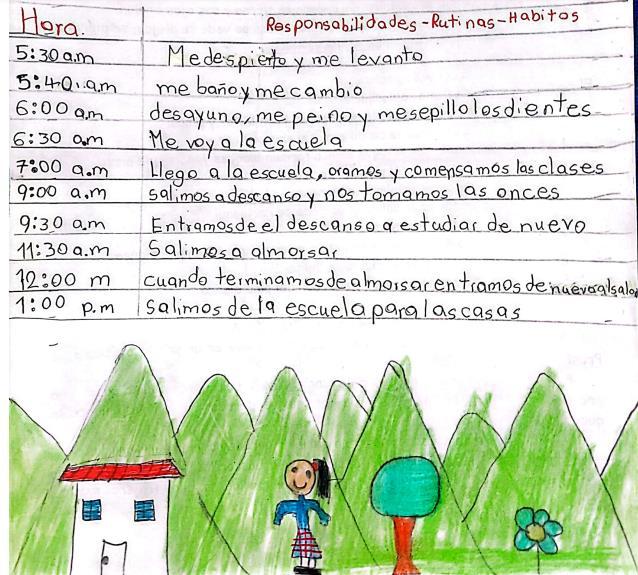 Hora. Responsabilidades-Rutinas-Habitos
5:30 a.m Me despierto y me levanto
5:40 a.m me baño y me cambio
6:00 a.m desayuno, me peino y me sepillo los dientes
6:30 a.m Me voy a la escuela
7:00 a.m Llego a la escuela, oramos y comensamos las clases
9:00 a.m salimos a descanso y nos tomamos las onces
9:30 a.m Entramos de el descanso a estudiar de nuevo
11:30 a.m Salimos a almorsar
12:00 m cuando terminamos de almorsar entramos de nuevo al salon
1:00 p.m salimos de la escuela para las casas